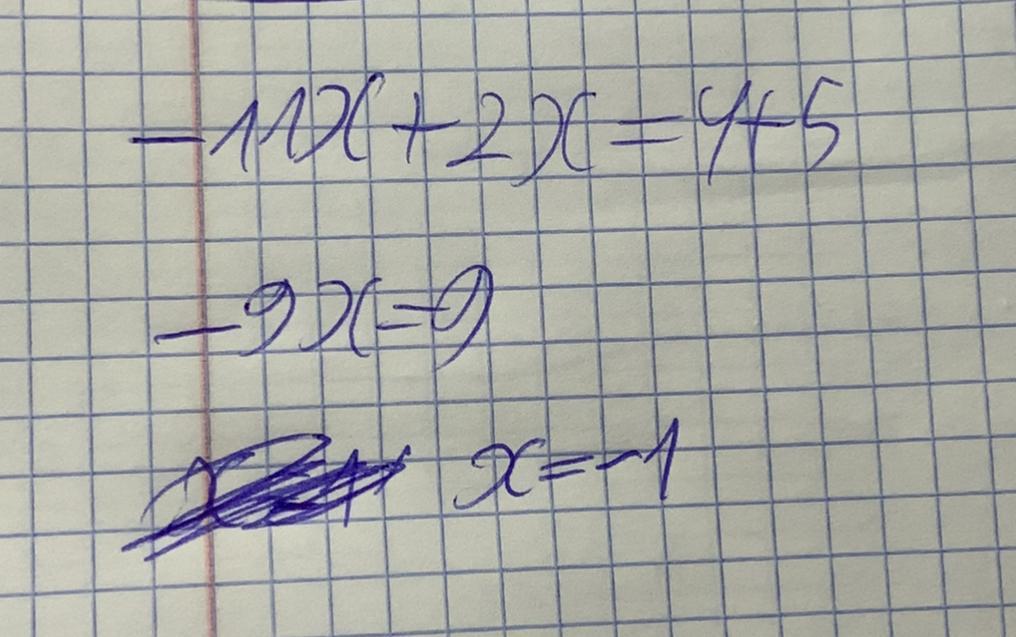 -11x+2x=4+5
-9x=9
x=-1